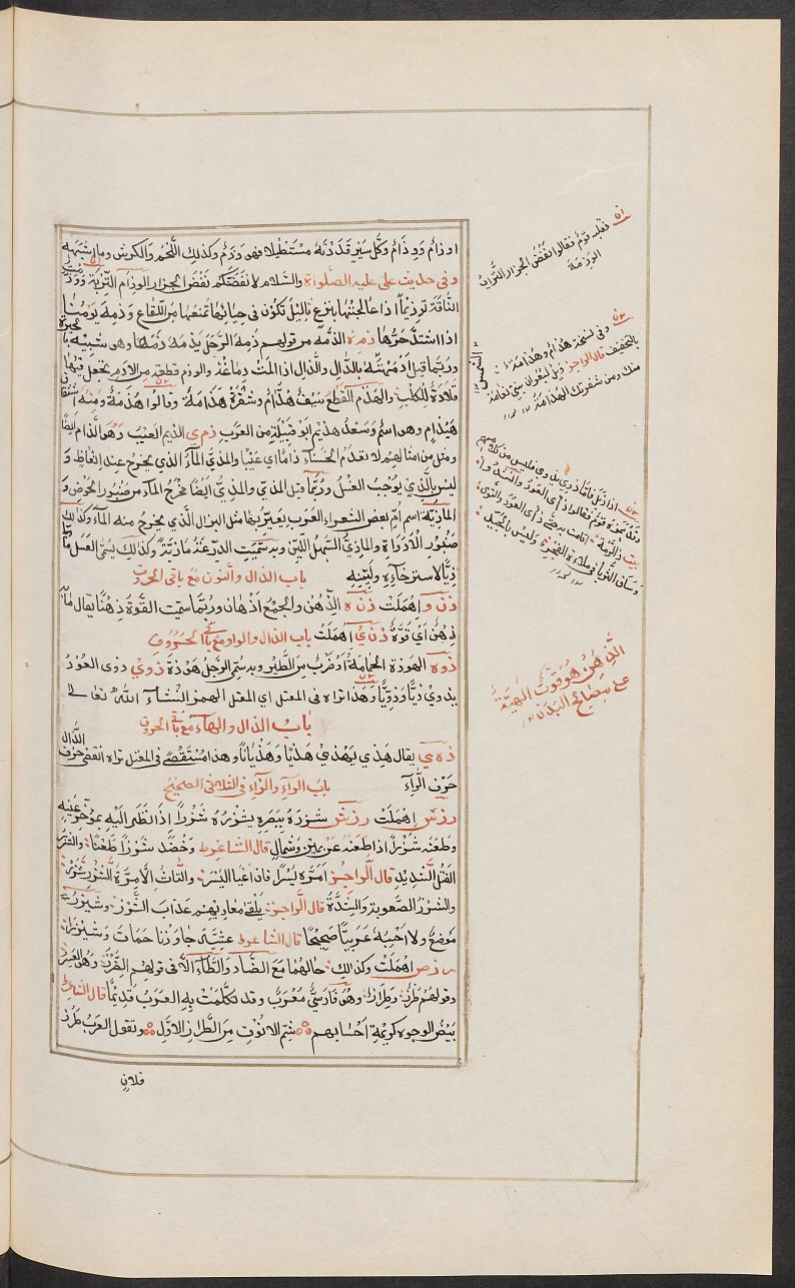 اوذام ووذام وكل سير قددته مستطيلا فهو وذم وكذلك اللحم والكرش وما اشبهه
وفى حديث على عليه الصلواة والسلام لانفضنكم نفض الجزار الوذام التربة ووذمت
الناقة توذيما اذا عالجتها بنزع ثاليل تكون فى حيائها تمنعها من اللقاح وذمه يومنا
اذا اشتد حرها ذمه الذمه من قولهم ذمه الرجل يذمه ذمها وهو شبيه بالحيرة
وربما قيل اذمهته بالدال والذال اذا المت دماغه والوذم قطع من الادم تجعل فيها
قلادة للكلب والهذم القطع سيف هذام وشفرة هذامة وقالوا هذمة ومنه اشتقاق
هيذام وهو اسم وسعد هذيم ابو قبيلة من العرب ذمى الذيم العيب وهو الذام ايضا
ومثل من امثالهم لا تعدم الحسناء ذاما اى عيبا والمذى الماء الذى يخرج عند انعاظ و
ليس بالذى يوجب الغسل وربما قيل المذى والمذى ايضا مخرج الماء من صنبور الحوض و
الماذية اسم ام بعض الشعراء العرب يعير بها مثل البزال الذى يخرج منه الماء وكذلك
صنبور الاداوة والماذى السهل اللين وبه سميت الدرع ماذية وكذلك يسمى العسل ما
ذيا لاسترخاءه ولينه باب الذال والنون مع باقى الحروف
ذن و اهملت ذن ه الذهن والجمع اذهان وربما سميت القوة ذهنا يقال ما به
ذهن اى قوة ذن ى اهملت باب الذال والواو مع باقى الحروف
ذوه الهوذة الحمامة او ضرب من الطير وبه سمى الرجل هوذة ذوى ذوى العود
يذوى ذيا وذويا وهذا تراه فى المعتل اى المعتل الهمز انشاء الله تعالى
باب الذال والهاء مع باقى الحروف
ذه ى يقال هذى يهذى هذيا وهذيانا وهذا مستقصى فى المعتل تراه انقضى حرف الذال
حرف الراء باب الراء والزاء فى الثلاثى الصحيح
رزس اهملت رزش شزره ببصره يشزره شزرا اذا نظر اليه بمؤخر عينه
وطعنه شزرا اذا طعنه عن يمين وشمال قال الشاعر وخضد شزرا طعنا والفتل
الفتل الشديد قال الراجز امره يسرا فان اعيا اليسر والتاث الا مرة الشزر شزر
والشزر الصعوبة والشدة قال الراجز يلقى معاديهم عذاب الشزر وشيزر
موضع ولا احسبه عربيا صحيحا قال الشاعر عشية جاوزنا حماة وشيزرا
رزص اهملت وكذلك حالهما مع الضاد والطاء الا فى قولهم الطرز وهو
وقولهم طرز وطراز وهو فارسى معرب وقد تكلمت به العرب قديما قال الشاعر
بيض الوجوه كريمة احسابهم شم الانوف من الطراز الاول وتقول العرب طرز
فلان
فقلبه قوم فقالوا نفض الجزار التراب
الوذمة
وفى نسخة هذام وهذامة
بالتخفيف قال الراجز ويل لبعران بنى نعامة
منك ومن شفرتك الهذامة
الذهن هو قوت البهية